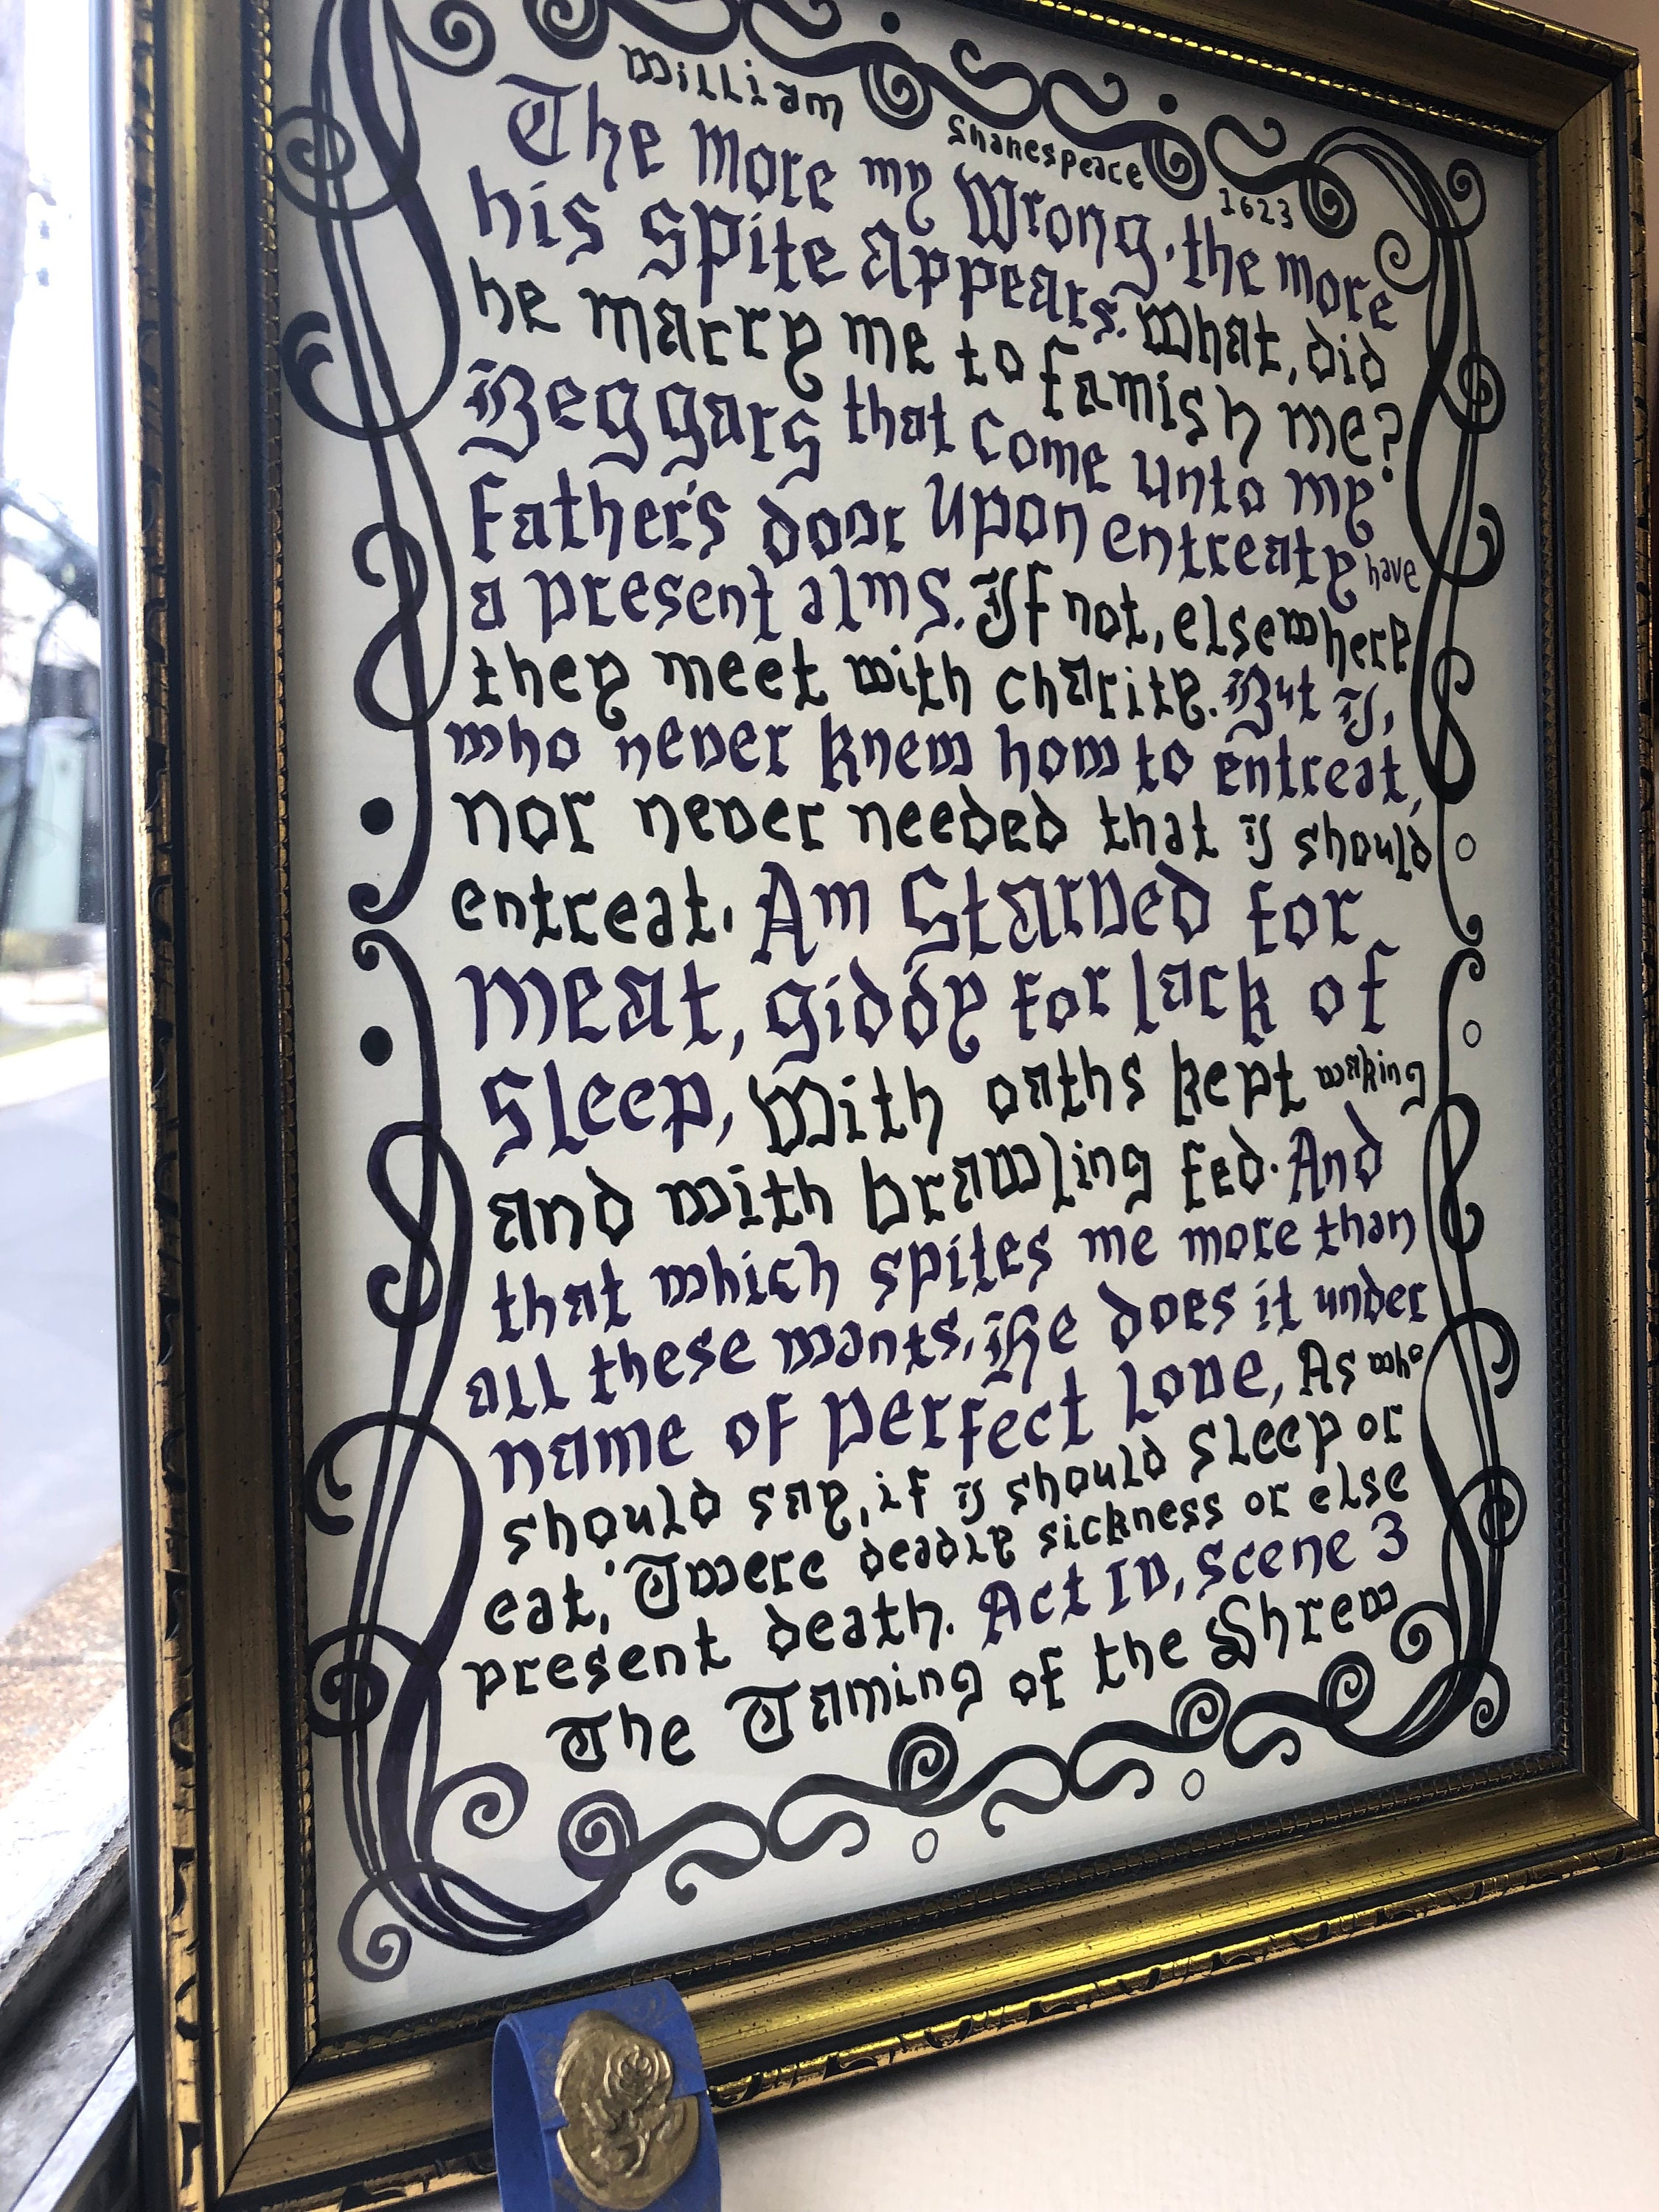 William Shanespeace 1623
The More my Wrong, the more
his Spite Appears. What, did
he marry me to famish me?
Beggars that come unto my
Father's door Upon entreaty have
a present alms. If not, elsewhere
they meet with charity. But I,
who never knew how to entreat,
nor never needed that I should
entreat. Am Starved for
meat, giddy for lack of
Sleep, With oaths kept waking
and with brawling fed. And
that which spites me more than
all these wants, He does it under
name of Perfect Love, As who
should say, if I should Sleep or
eat, 'Twere deadly sickness or else
present death. Act IV, Scene 3
The Taming of the Shrew